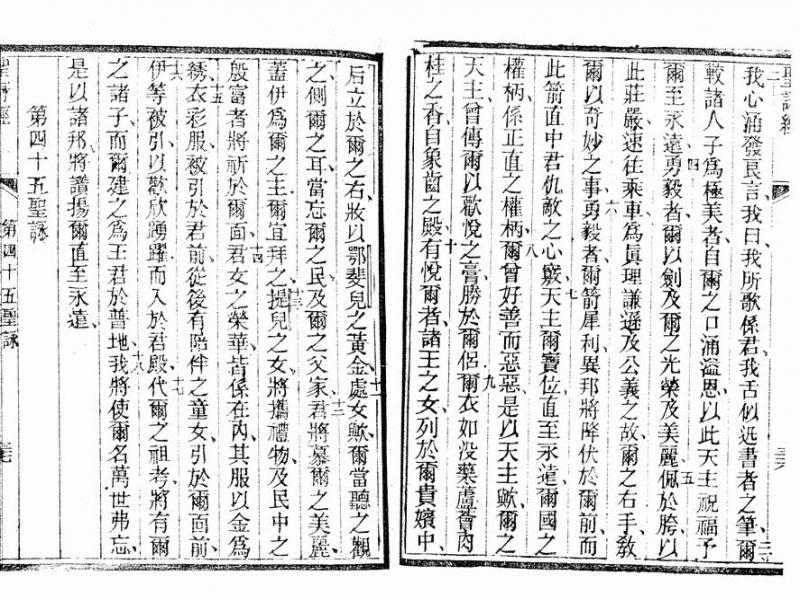 聖詠經
我心涌發良言、我曰、我所歌係君、我舌似迅書者之筆、爾
較諸人子爲極美者、自爾之口涌溢恩、以此天主祝福予
爾至永遠、勇毅者、爾以劍及爾之光榮及美麗佩於胯、以
此莊嚴速往、乘車、爲眞理謙遜及公義之故、爾之右手教
爾以奇妙之事、勇毅者、爾箭犀利、異邦將降伏於爾前、而
此箭直中君仇敵之心竅、天主、爾寶位直至永遠、爾國之
權柄、係正直之權柄、爾曾好善而惡惡、是以天主歟、爾之
天主曾傅爾以歡悅之膏、勝於爾侶、爾衣如沒藥蘆薈肉
桂之香、自象齒之殿有悅爾者、諸王之女、列於爾貴嬪中、
后立於爾之右、妝以鄂斐兒之黃金、處女歟、爾當聽之觀
之、側爾之耳、當忘爾之民及爾之父家、君將慕爾之美麗、
蓋伊爲爾之主、爾宜拜之、提兒之女、將攜禮物、及民中之
殷富者、將祈於爾面、君女之榮華、皆係在內、其服以金爲
綉、衣彩服、被引於君前、從後有陪伴之童女、引於爾面前、
伊等被引以歡欣踴躍、而入於君殿、代爾之祖考、將有爾
之諸子、而爾建之爲王君於普地、我將使爾名萬世弗忘、
是以諸邦將讚揚爾、直至永遠、
第四十五聖詠
聖詠經 第四十五聖詠